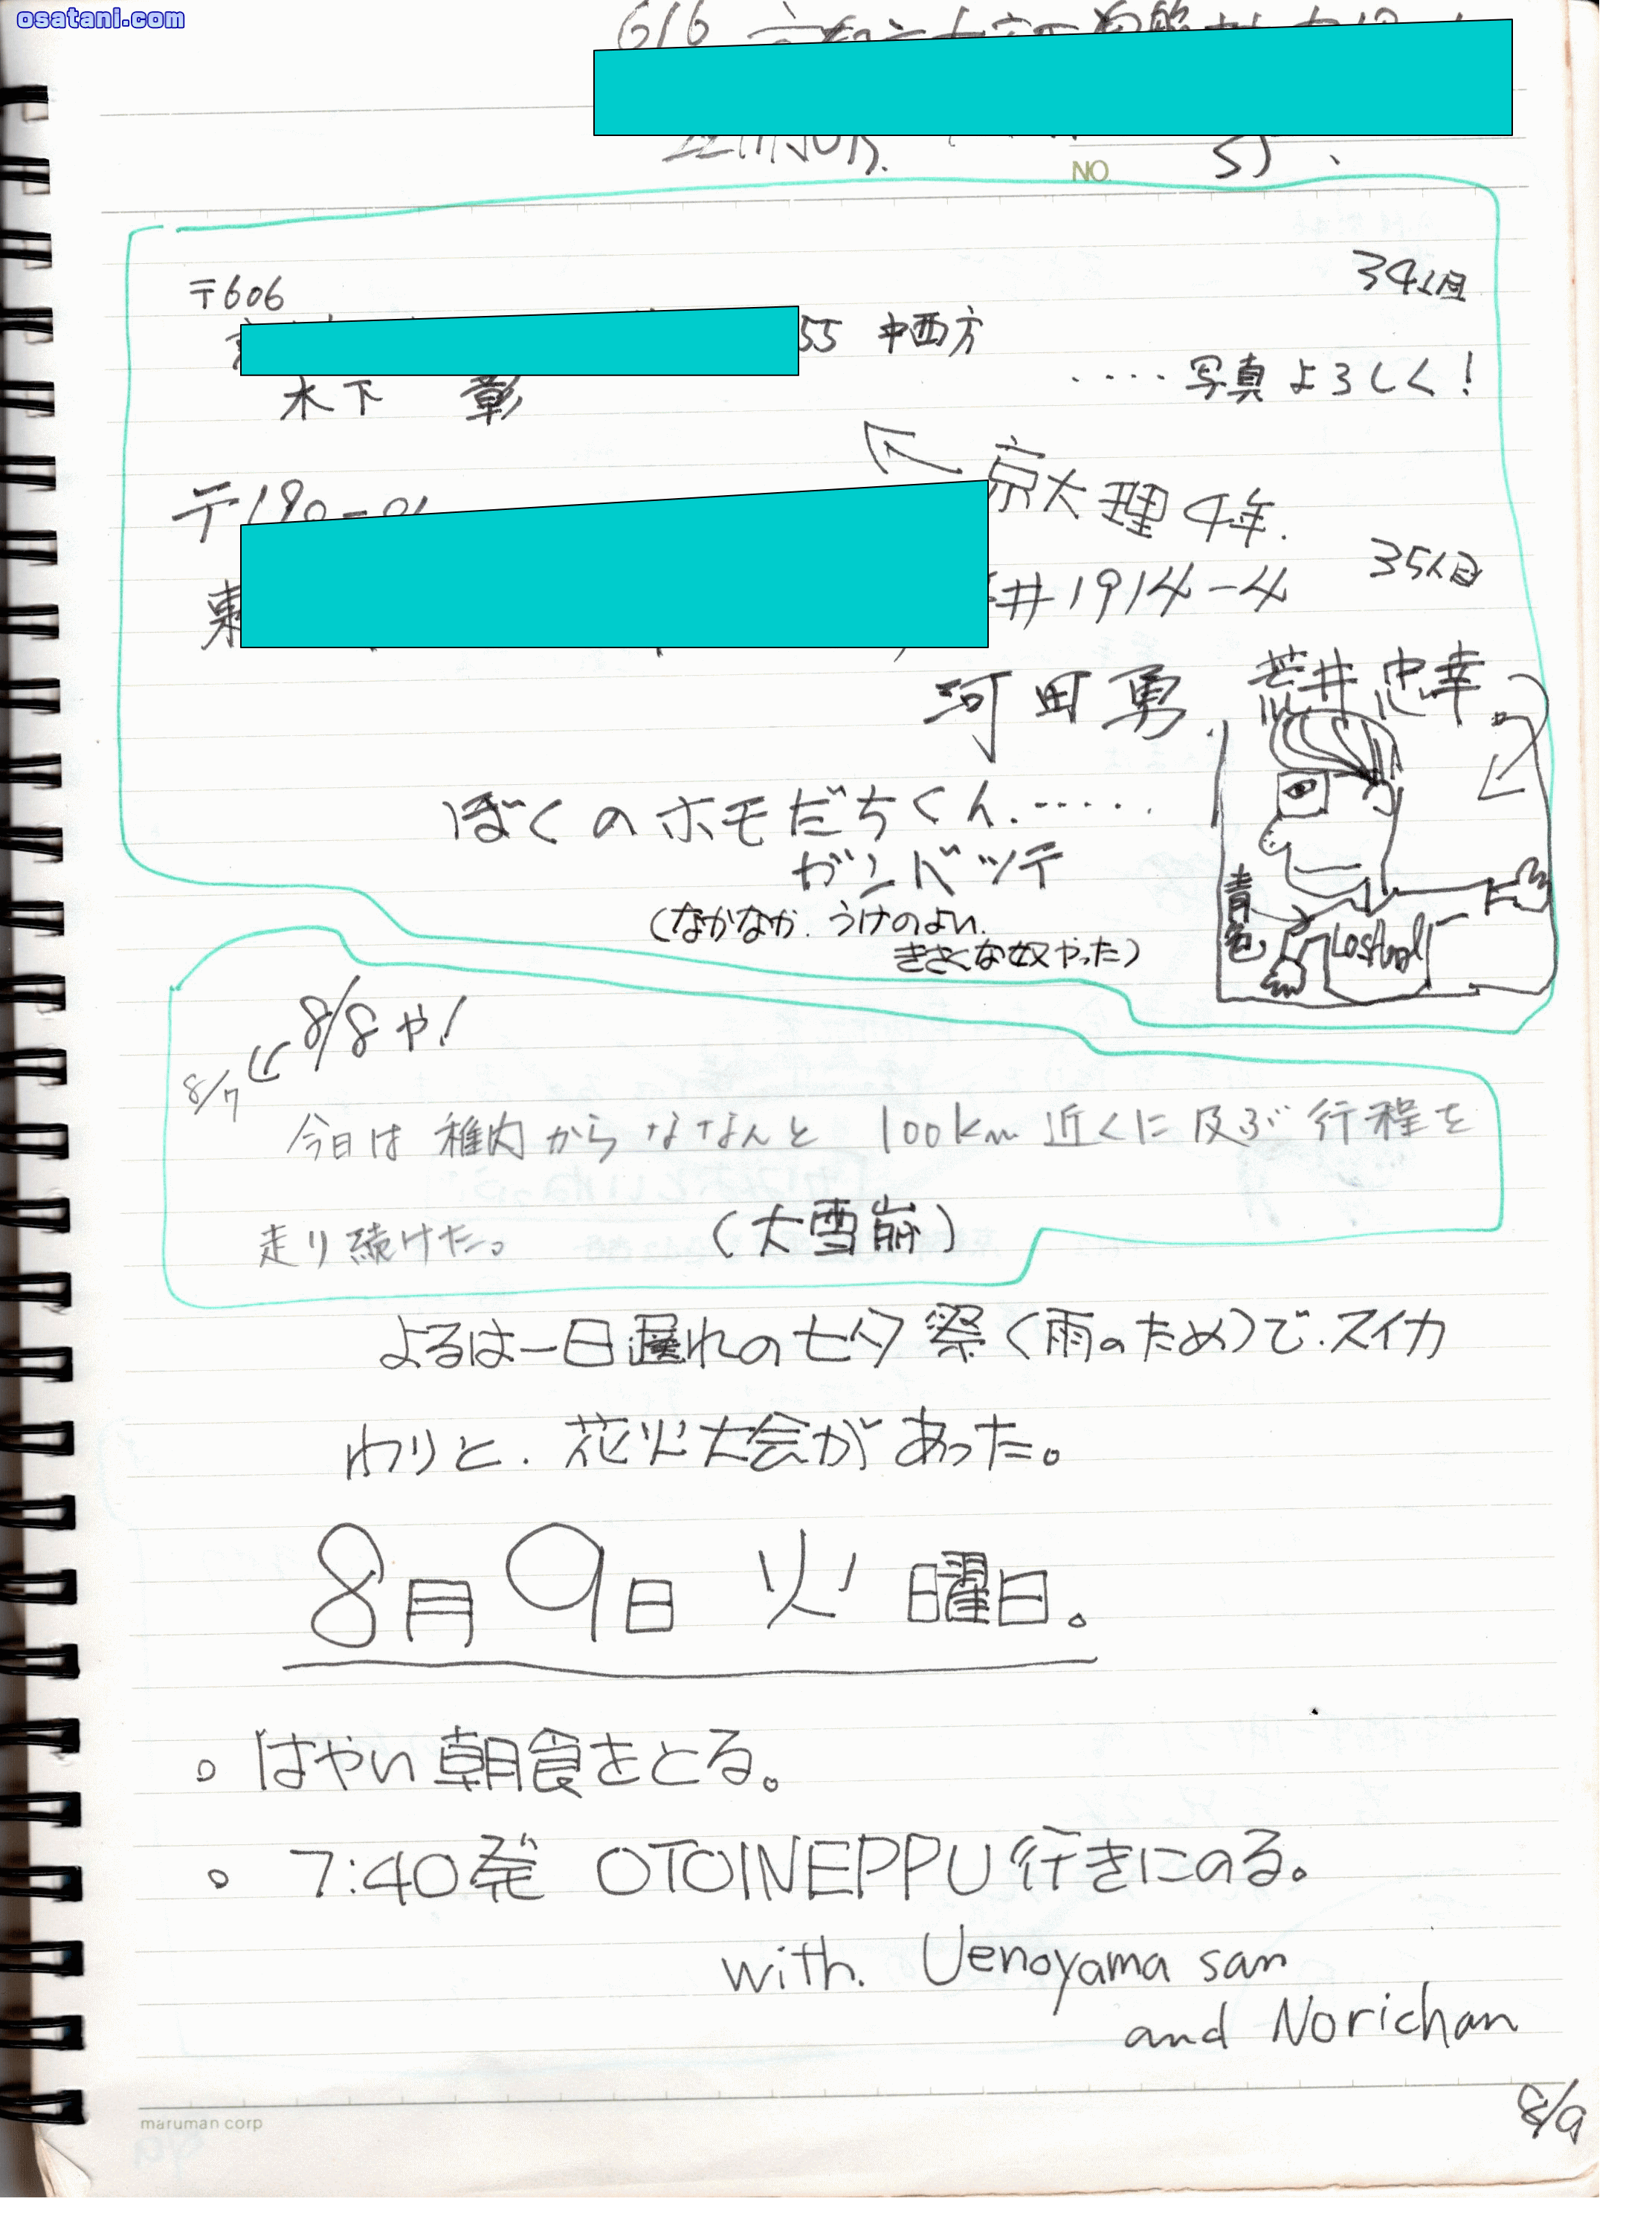 osatani.com
616
NO.
〒606
34人目
55 中西方
‥‥写真よろしく!
木下 彰
〒190-01
京大理4年.
35人目
井1914-4
河田勇. 荒井忠幸.
ぼくのホモだちくん.‥‥‥
ガンバッテ
(なかなか.うけのよい.
きさくな奴やった)
青色
8/8や!
8/7
今日は稚内からななんと 100km近くに及ぶ行程を
走り続けた。 (大雪崩)
よるは一日遅れの七夕祭(雨のため)で.スイカ
わりと.花火大会があった。
8月9日 火曜日。
。はやい朝食をとる。
。7:40発 OTOINEPPU行きにのる。
with. Uenoyama san
and Norichan
8/9
maruman corp